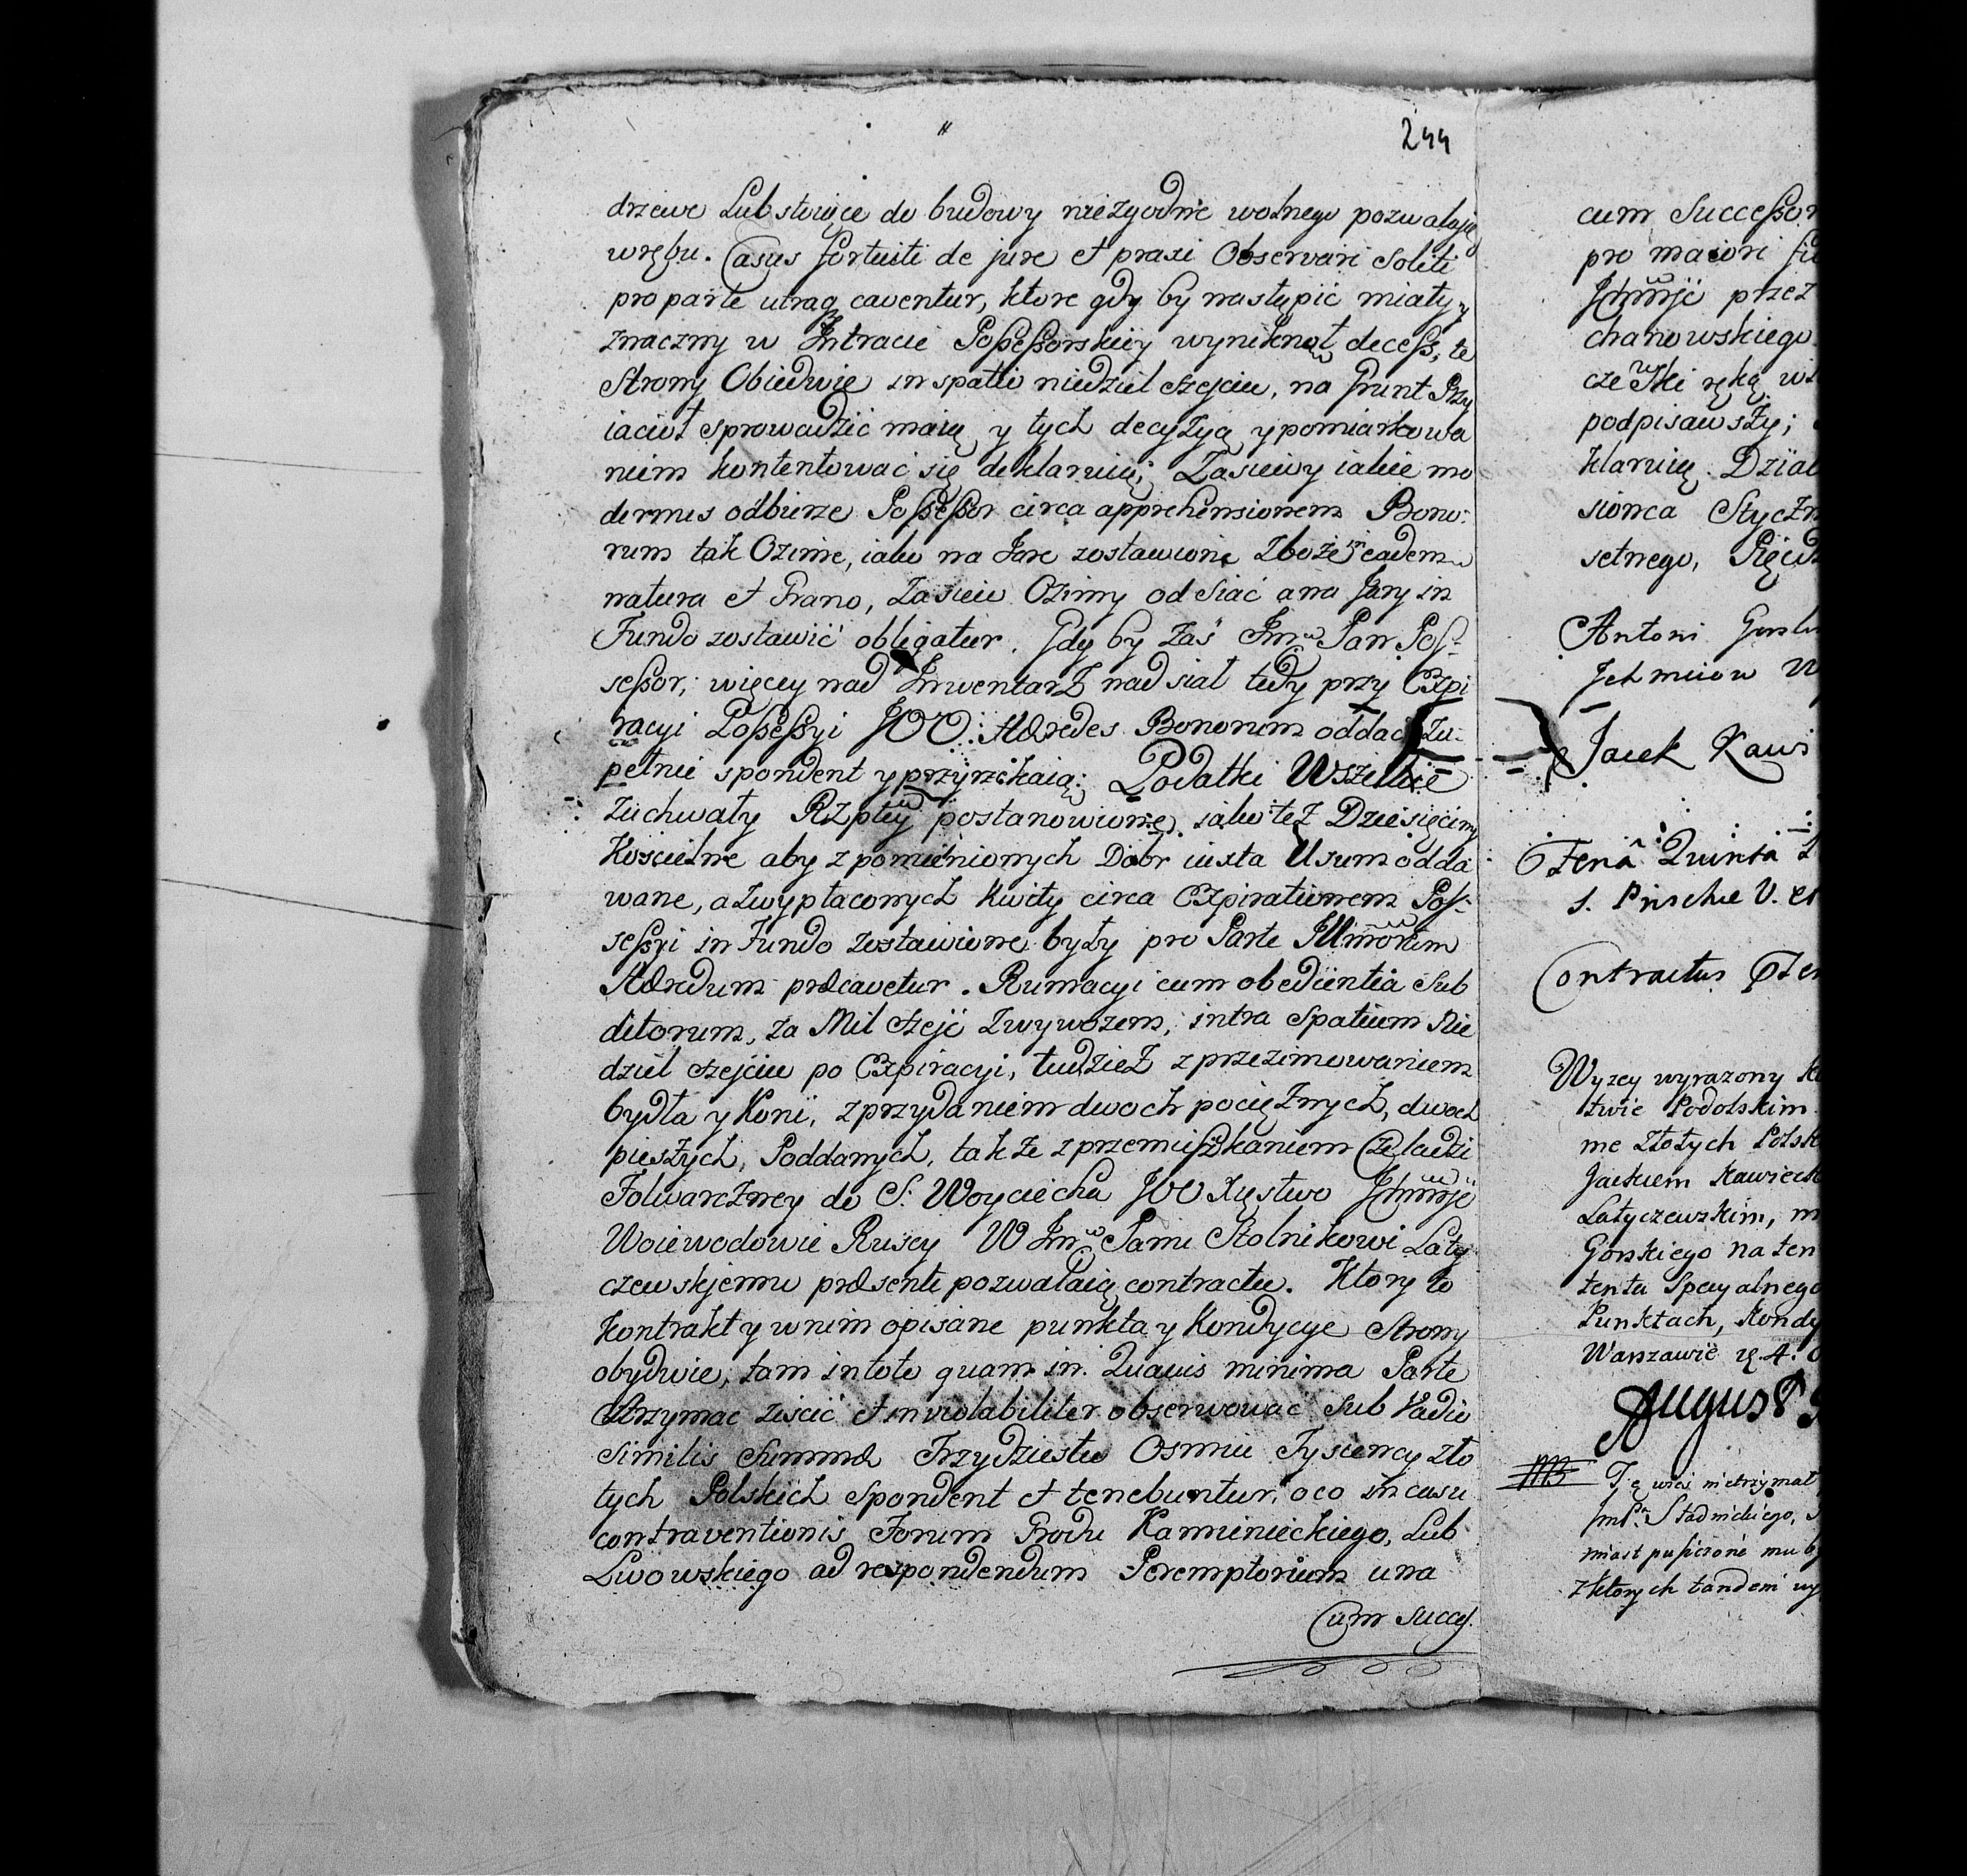 244
drzewo Lub stoiące do budowy niezgodne wolnego pozwalaią
wrębu. Casus fortuiti de jure et praxi Observari Soliti
pro parte utraq caventur, ktore gdy by nastąpić miały y
znaczny w Intracie Possessorskiey wyniknął decess, te
Strony Obiedwie in spatio niedziel sześciu, na Grunt Przy
iaciół sprowadzić maią y tych decyzyą y pomiarkowa
niem kontentować się deklaruią; Zasiewy iakie mo
dernus odbierze Possessor circa apprehensionem Bono:
rum tak Ozime, iako na Jare zostawione Zboże in eadem
natura et Grano, Zasiew Ozimy odsiać a na Jary in
Fundo zostawić obligatur. Gdy by zaś Imć Pan Pos-
sessor, więcey nad Inwentarz nadsiał tedy przy Expi
racyi Possessyi JOO: Hæredes Bonorum oddać Zu-
pełnie spondent y przyrzekaią: Podatki Wszelkie
Zuchwały Rzpltey postanowione, iako też Dziesięciny
Kościelne aby z pomienionych Dobr iuxta Usum odda
wane, a z wypłaconych kwity circa Expirationem Pos-
sessyi in Fundo zostawione były pro Parte Illmorum
Hæredum præcavetur. Rumacyi cum obedientia Sub
ditorum, za Mil sześć z wywozem, intra Spatium Nie
dziel sześciu po Expiracyi, tudzież z przezimowaniem
bydła y Koni, z przydaniem dwoch pociężnych, dwoch
pieszych, Poddanych, także z przemieszkaniem Czeladzi
Folwarczney do S: Woyciecha JOO Xięstwo Ichmć
Woiewodowie Ruscy W Imć Panu Stolnikowi Laty
czewskiemu præsenti pozwalaią contractu. Ktory to
Kontrakt y w nim opisane punkta y Kondycye Strony
obydwie, tam in toto quam in Quavis minima Parte
strzymac ziscić et inviolabiliter obserwować Sub Vadio
Similis Summæ Trzydziestu Osmiu Tysiency zło
tych Polskich Spondent et tenebuntur, o co in casu
contraventionis Forum Grodu Kamienieckiego, Lub
Lwowskiego ad respondendum Peremptorium una
Cum Succes.
cum Successor
pro maiori
Ichmć przez
chanowskiego
ręką
podpisawszy;
klaruią. Dział
sionca Styczn
setnego, Pięćdz
Antoni
Jacek Kawi
Feria Quinta
s. Priscæ V. et
Contractus
Wyzey wyrazony
twie Podolskim
me złotych Polsk
Jackiem Kawieck
Latyczewskim, m
Gorskiego na ten
tentu Specyalnego
Punktach, Kondy
Warszawie 4.
August
Stadnickiego,
miast puszczone mu
z ktorych tandem